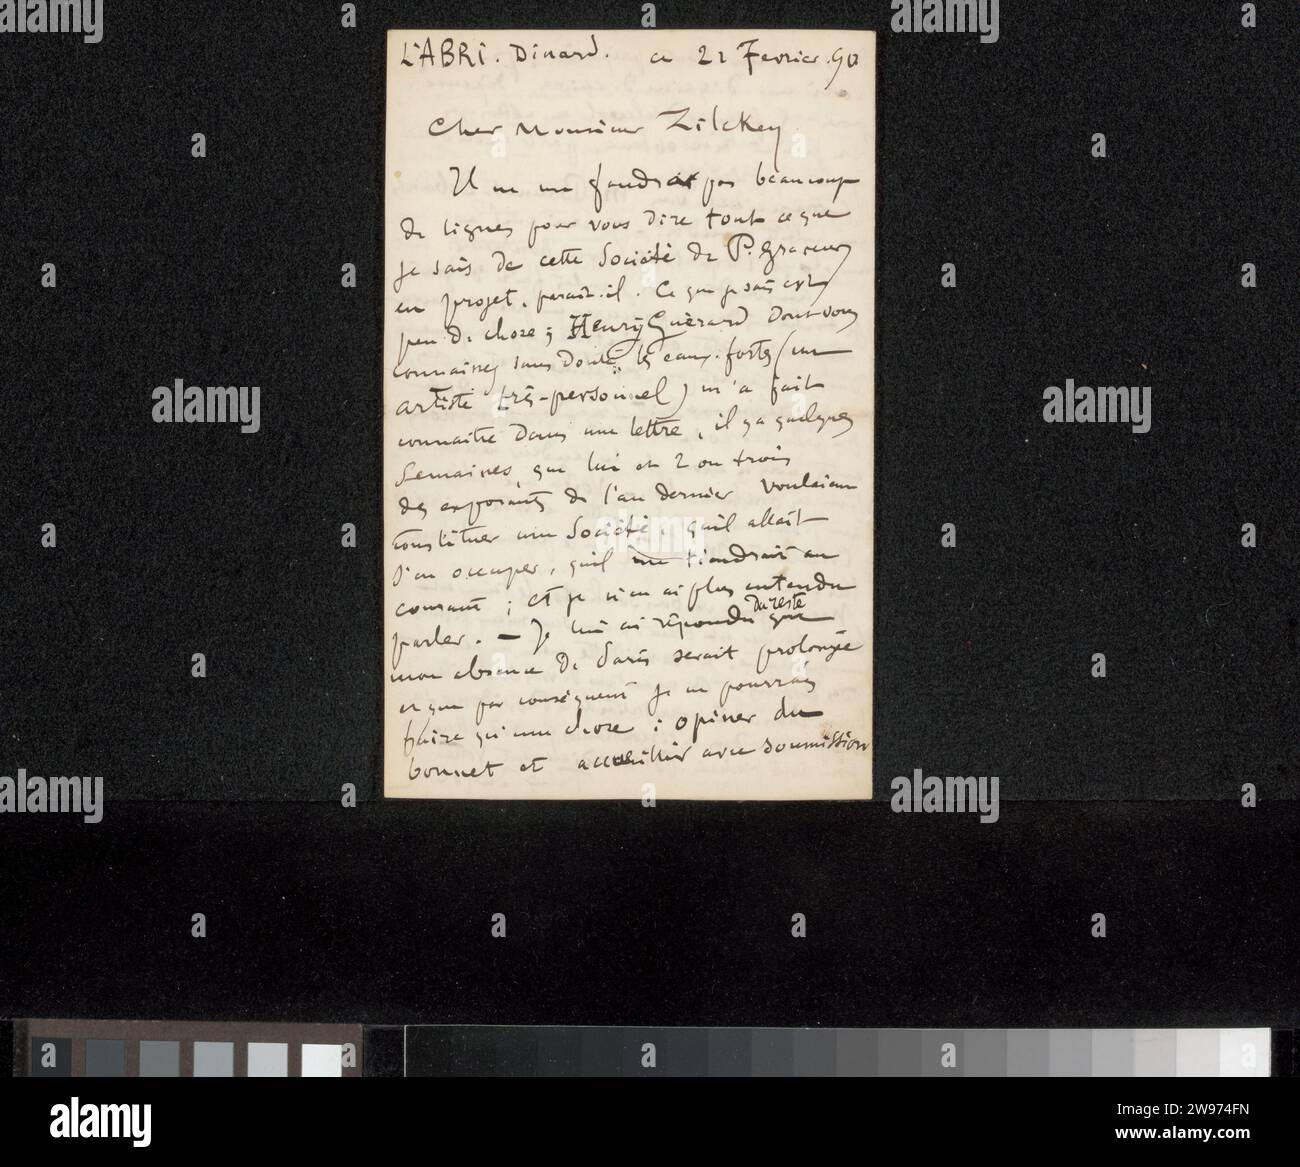 L'ABRI. Dinard. ce 21 Fevrier. 90
Cher Monsieur Zilcken
Il ne me faudrat pas beaucoup
de lignes pour vous dire tout ce que
je sais de cette Société de P. Graveurs
en projet, parait-il. Ce que je sais est
peu de chose ; Henry Guèrard dont vous
connaissez sans doute les eaux-fortes (un
artiste très-personnel) m'a fait
connaitre dans une lettre, il y a quelques
Semaines, que lui et 2 ou trois
des exposants de l'an dernier voulaient
constituer une Société, qu'il allait
s'en occuper, qu'il me tiendrait au
courant ; et je n'en ai plus entendu
parler. — Je lui ai répondu du reste que
mon absence de Paris serait prolongée
et que par conséquent je ne pourrais
faire qu'une chose : opiner du
bonnet et accueillir avec soumission
alamy
alamy
Image ID: 2W974FN
www.alamy.com